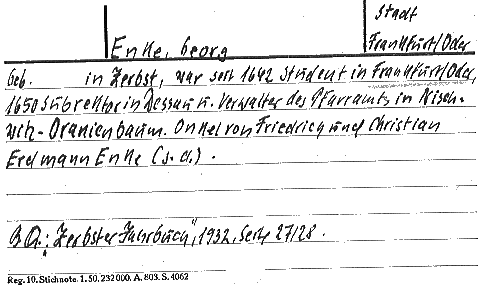 Stadt
Enke, Georg
Frankfurt/Oder
Geb. in Zerbst, war seit 1642 Student in Frankfurt/Oder,
1650 Subrektor in Dessau u. Verwalter des Pfarramts in Nisch-
witz-Oranienbaum. Onkel von Friedrich und Christian
Erdmann Enke (s.d.).
BQ.: "Zerbster Jahrbuch", 1932, Seite 27/28.
Reg. 10. Stichnote. 1. 50. 232000. A. 803. S. 4062